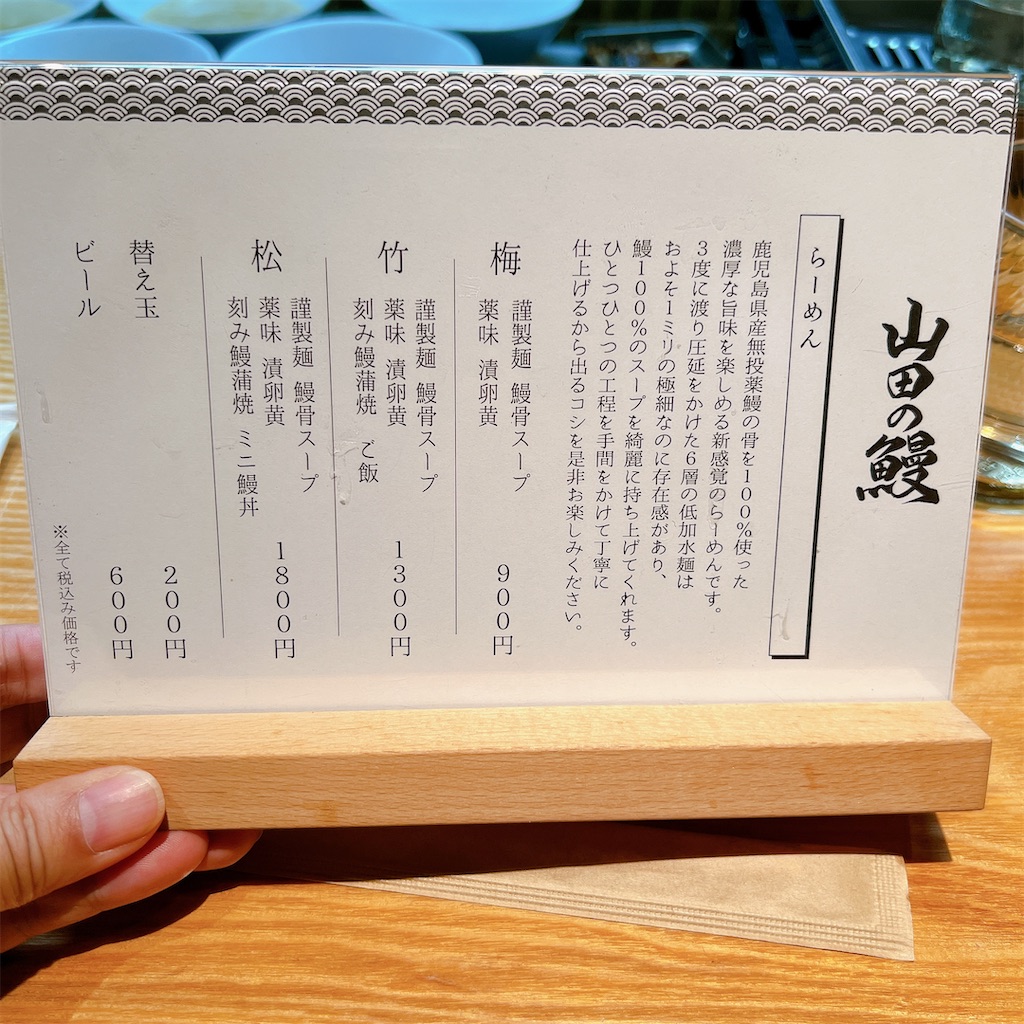 山田の鰻
らーめん
鹿児島県産無投薬鰻の骨を100%使った
濃厚な旨味を楽しめる新感覚のらーめんです。
3度に渡り圧延をかけた6層の低加水麺は
およそ1ミリの極細なのに存在感があり、
鰻100%のスープを綺麗に持ち上げてくれます。
ひとつひとつの工程を手間をかけて丁寧に
仕上げるから出るコシを是非お楽しみください。
梅
謹製麺 鰻骨スープ
薬味 漬卵黄
900円
竹
謹製麺 鰻骨スープ
薬味 漬卵黄
刻み鰻蒲焼 ご飯
1300円
松
謹製麺 鰻骨スープ
薬味 漬卵黄
刻み鰻蒲焼 ミニ鰻丼
1800円
替え玉 200円
ビール 600円
※全て税込み価格です